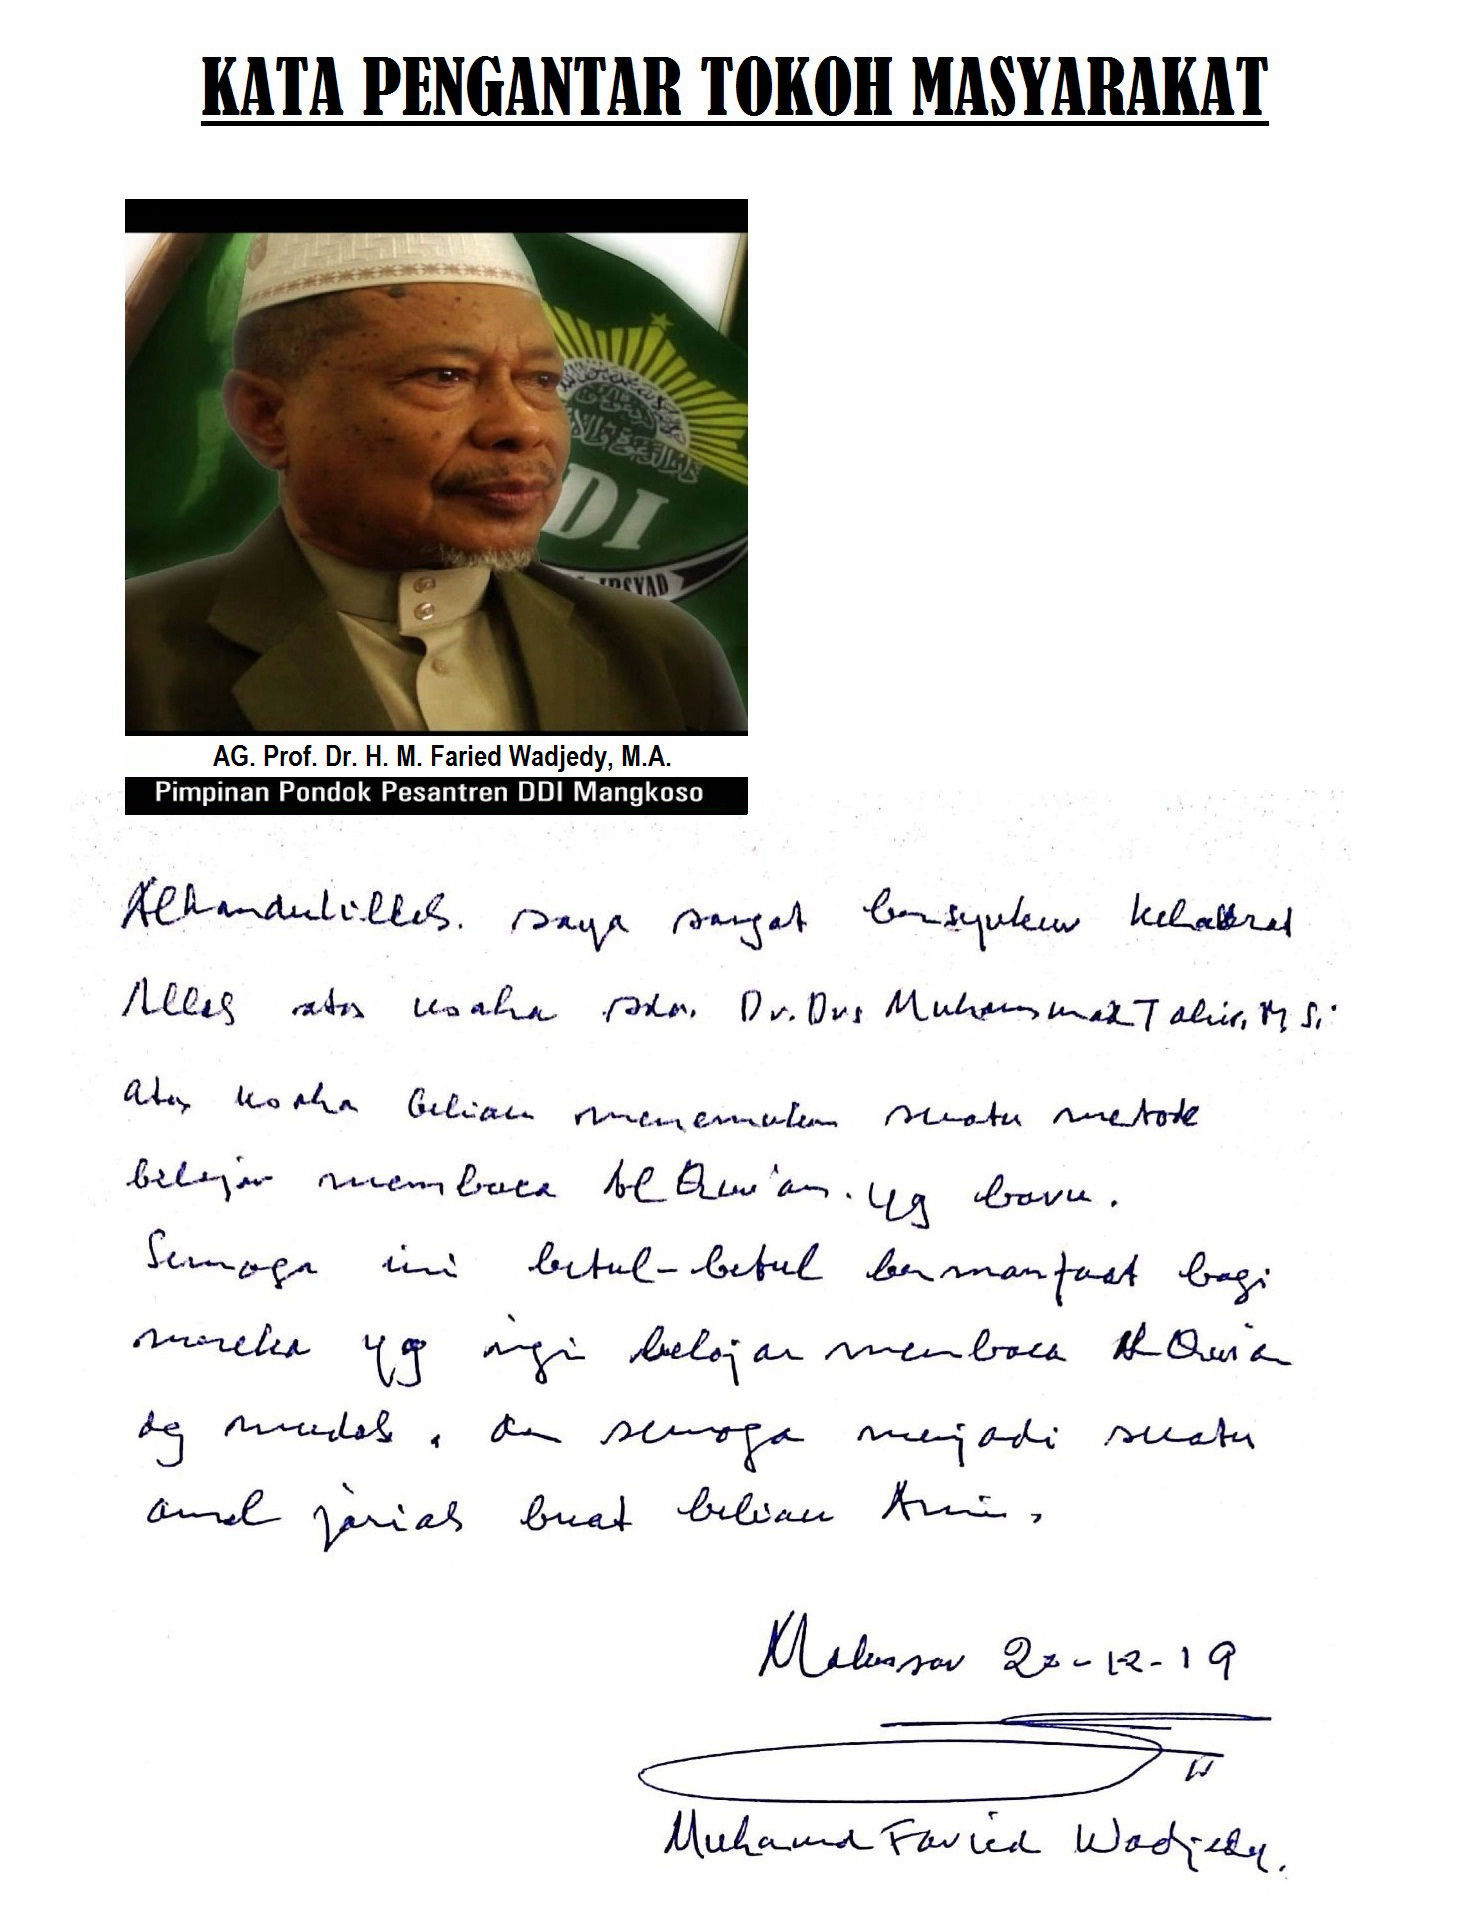 KATA PENGANTAR TOKOH MASYARAKAT
DDI
IRSYAD
AG. Prof. Dr. H. M. Faried Wadjedy, M.A.
Pimpinan Pondok Pesantren DDI Mangkoso
Alhamdulillah. saya sangat bersyukur kehadirat
Allah atas usaha sdr. Dr. Drs Muhammad Tahir, M, Si.
atas usaha beliau menemukan suatu metode
belajar membaca Al Qur'an. yg baru.
Semoga ini betul-betul bermanfaat bagi
mereka yg ingi belajar membaca Al Qur'an
dg mudah, dan semoga menjadi suatu
amal jariah buat beliau Amin.
Makassar -12-19
Muhamad Faried Wadjedy.